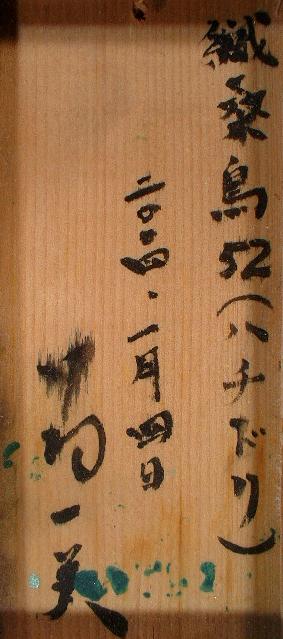 鳥52(ハチドリ)
二〇〇四、一月四日
一美